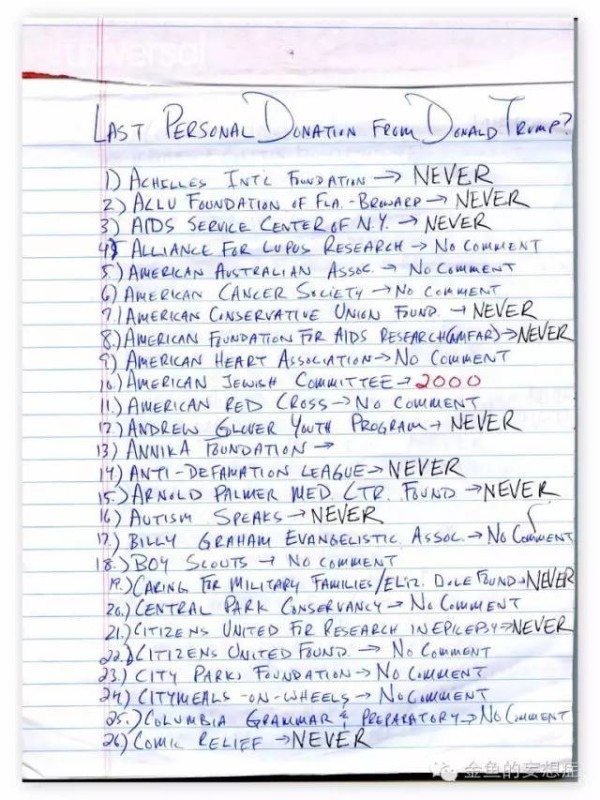 universal
LAST PERSONAL DONATION FROM DONALD TRUMP?
1) ACHILLES INT'L FOUNDATION → NEVER
2) ALLU FOUNDATION OF FLA.-BROWARD → NEVER
3) AIDS SERVICE CENTER OF N.Y. → NEVER
4) ALLIANCE FOR LUPUS RESEARCH → NO COMMENT
5.) AMERICAN AUSTRALIAN ASSOC. → NO COMMENT
6) AMERICAN CANCER SOCIETY → NO COMMENT
7.) AMERICAN CONSERVATIVE UNION FOUND. → NEVER
8.) AMERICAN FOUNDATION FOR AIDS RESEARCH (AMFAR) → NEVER
9) AMERICAN HEART ASSOCIATION → NO COMMENT
10.) AMERICAN JEWISH COMMITTEE → 2000
11.) AMERICAN RED CROSS → NO COMMENT
12.) ANDREW GLOVER YOUTH PROGRAM → NEVER
13) ANNIKA FOUNDATION →
14) ANTI-DEFAMATION LEAGUE → NEVER
15.) ARNOLD PALMER MED CTR. FOUND → NEVER
16) AUTISM SPEAKS → NEVER
17.) BILLY GRAHAM EVANGELISTIC ASSOC. → NO COMMENT
18.) BOY SCOUTS → NO COMMENT
19.) CARING FOR MILITARY FAMILIES/ELIZ. DOLE FOUND → NEVER
20.) CENTRAL PARK CONSERVANCY → NO COMMENT
21.) CITIZENS UNITED FOR RESEARCH IN EPILEPSY → NEVER
22.) CITIZENS UNITED FOUND. → NO COMMENT
23.) CITY PARKS FOUNDATION → NO COMMENT
24) CITYMEALS-ON-WHEELS → NO COMMENT
25.) COLUMBIA GRAMMAR & PREPARATORY → NO COMMENT
26) COMIC RELIEF → NEVER
金鱼的妄想症